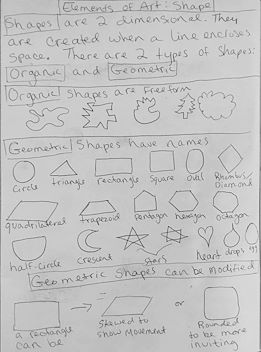 Elements of Art: Shape
Shapes are 2 dimensional. They
are created when a line encloses
space. There are 2 types of shapes:
Organic and Geometric
Organic Shapes are Freeform
Geometric Shapes have names
circle triangle rectangle square oval Rhombus/
Diamond
quadrilateral trapezoid pentagon hexagon octagon
half-circle cresent stars heart drops egg
Geometric Shapes can be Modified
a rectangle
can be
Skewed to
show Movement
or
Rounded
to be more
inviting